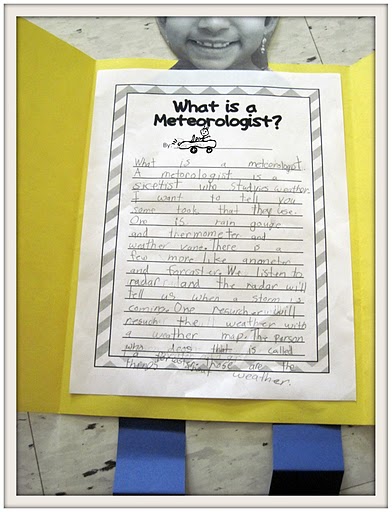 What is a
Meteorologist?
By:
What is a meteorologist.
A metorologist is a
sketist who studys weather.
I want to tell you
some tools that they use.
One is rain gouge
and thermometer and
weather vane. There is a
few more like anometer
and forcaster. We listen to
radar and the radar will
tell us when a storm is
coming. One resurcher will
resurch the weather with
a weather map. The person
who does that is called
a forcaster. Those are the
things about weather.